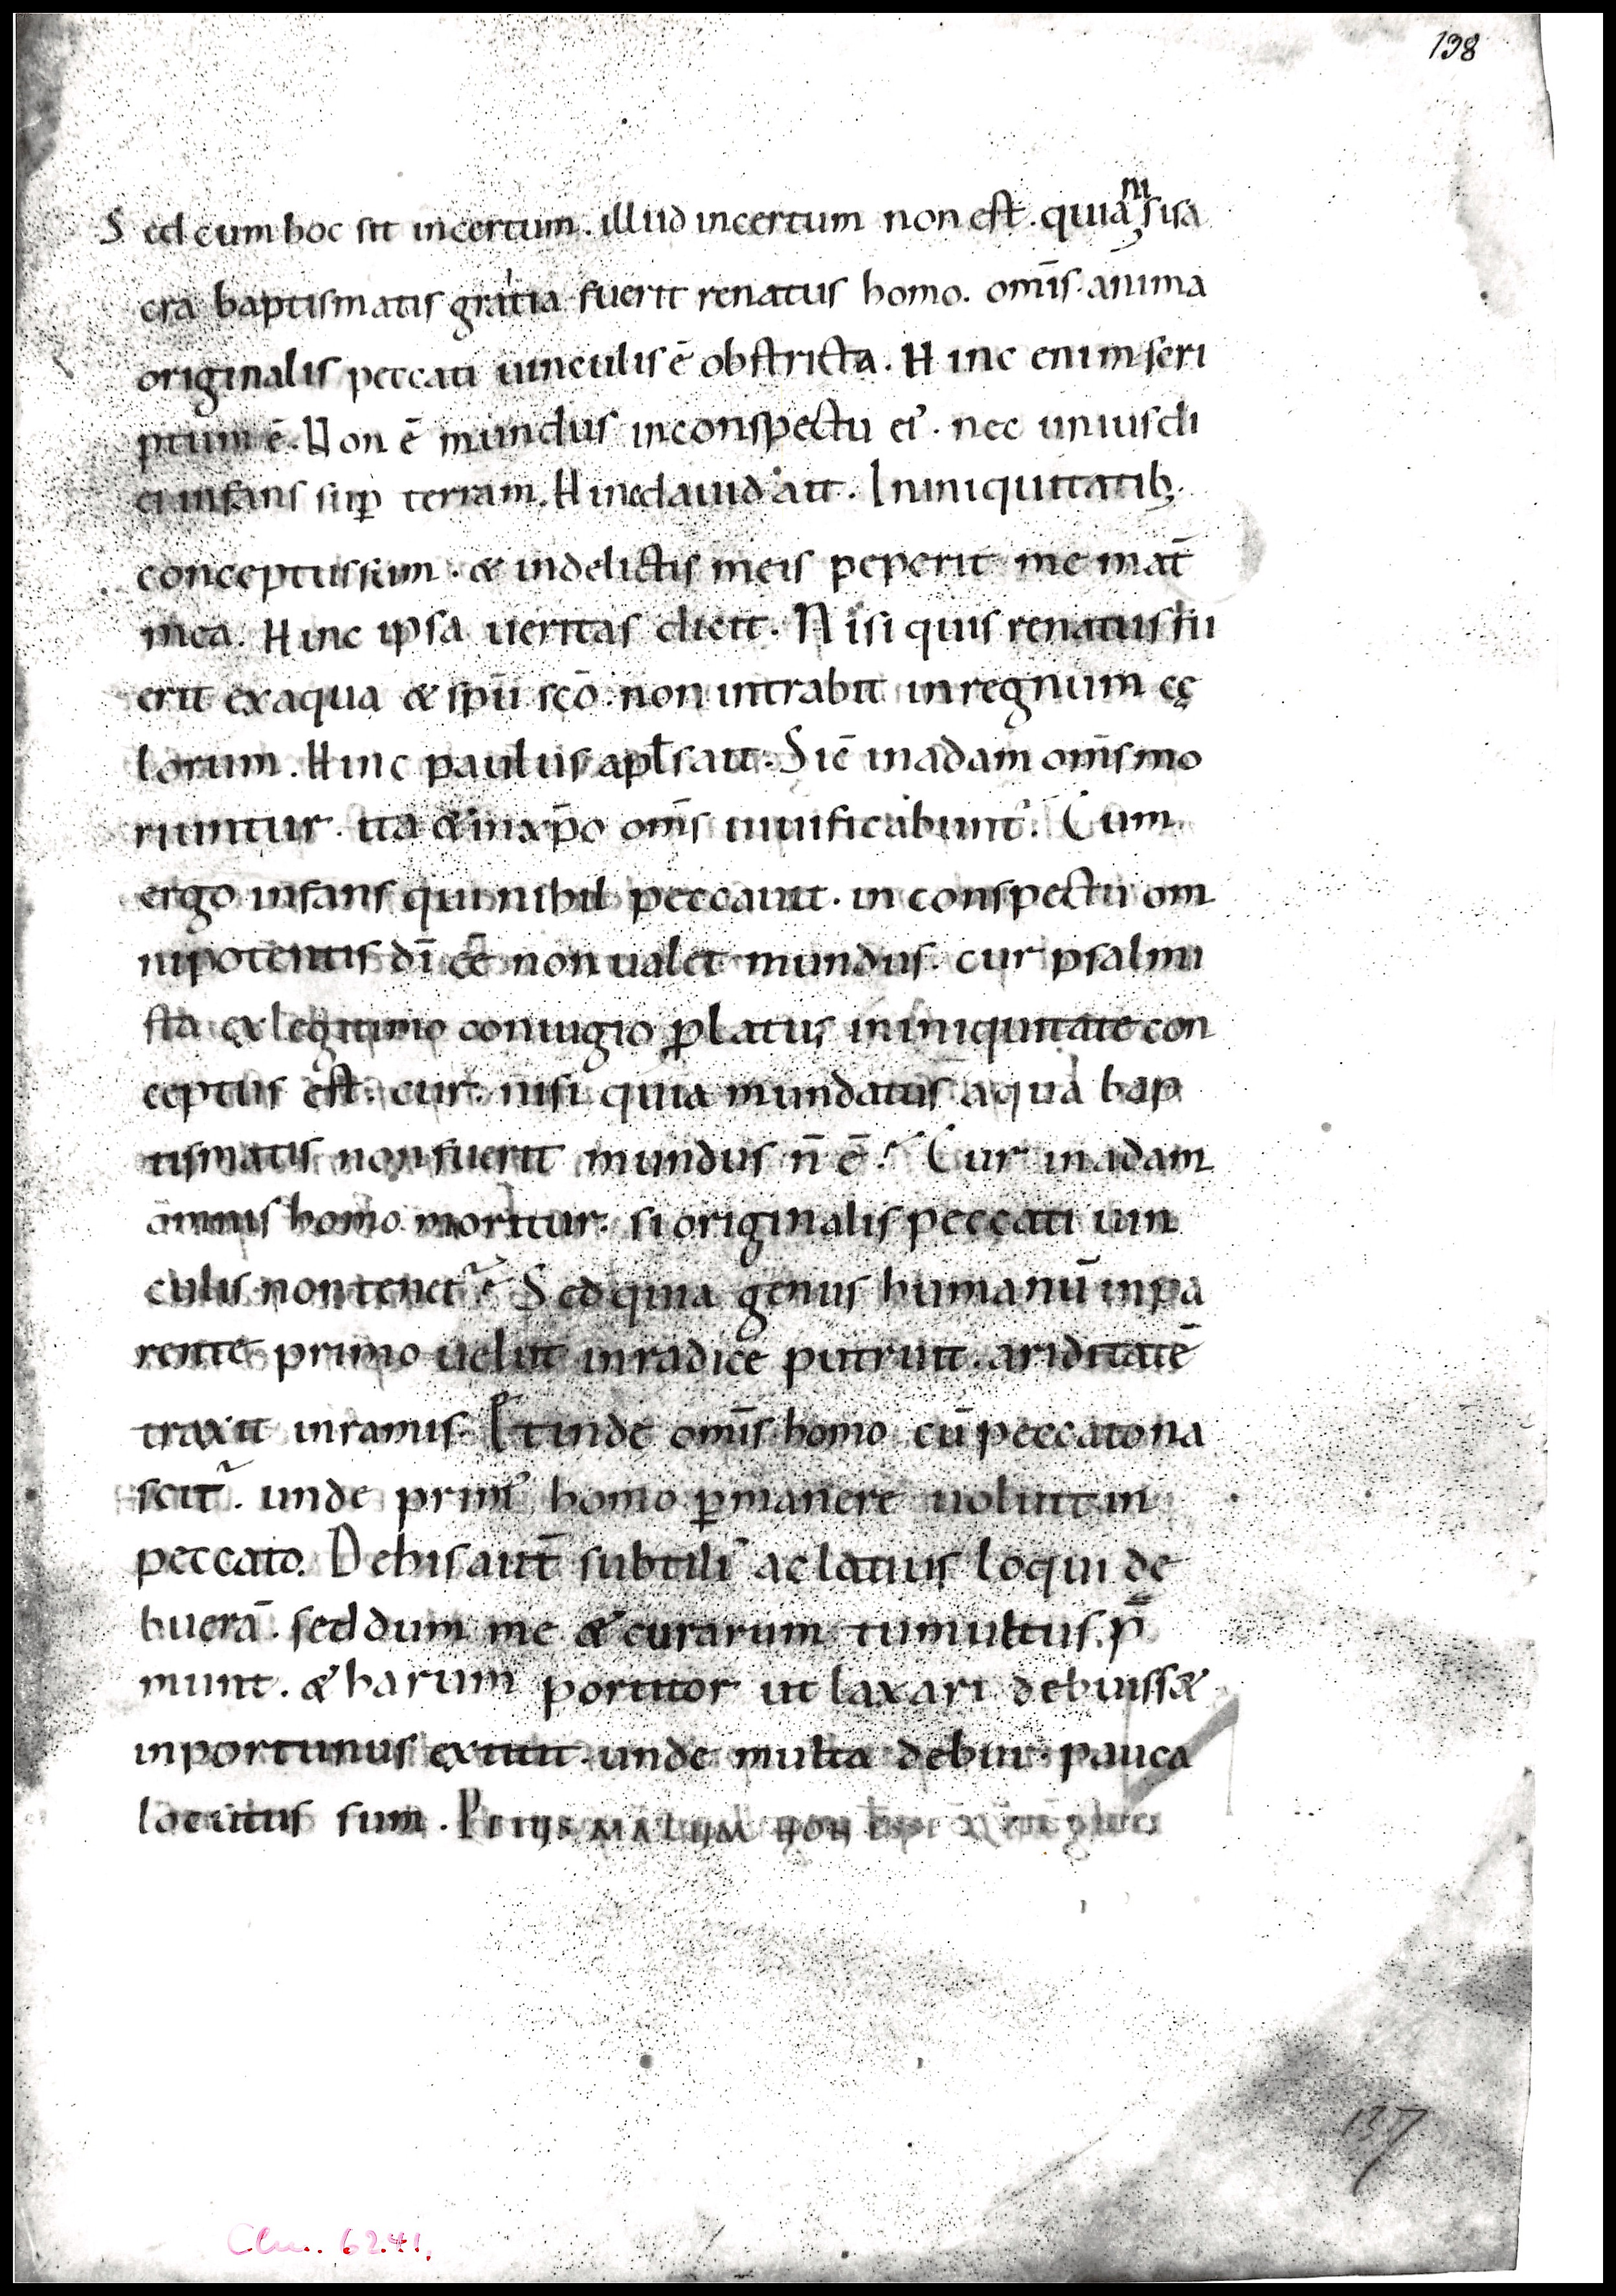 138
Sed cum hoc sit incertum. illud incertum non est. quia ni sisa
cra baptismatis gratia fuerit renatus homo. omīs anima
originalis peccati uinculis ē obstricta. Hinc enim scri
ptum ē. Non ē mundus inconspectu ei'. nec unius di
ei infans sup̄ terram. Hinc dauid ait. Ininiquitatib;
conceptus sum. & indelictis meis peperit me mat̄
mea. Hinc ipsa ueritas dicit. Nisi quis renatus fu
erit exaqua & sp̄u sc̄o. non intrabit inregnum cę
lorum. Hinc paulus apl̄s ait. Sic̄ inadam omīs mo
riuntur. ita & inxp̄o om̄s uiuificabunt'. Cum
ergo infans qui nihil peccauit. in conspectu om
nipotentis dī ēē non ualet mundus. cur psalmi
sta ex legitimo coniugio ꝓlatus in iniquitate con
ceptus est. cur. nisi quia mundatus aqua bap
tismatis non fuerit mundus n̄ ē? Cur inadam
omnis homo moritur. si originalis peccati uin
culis non tenet'? Sed quia genus humanū inpa
rente primo uelut inradice putruit. ariditatē
traxit inramis. Et inde omīs homo cū peccato na
scit'. unde prim' homo ꝑmanere uoluit in
peccato. De his aut̄ subtili' ac latius loqui de
buerā. sed dum me & curarum tumultus p̄
munt. & harum portitor ut laxari debuiss&
inportunus extitit. unde multa debui. pauca
locutus sum.
137
Clm. 6241.